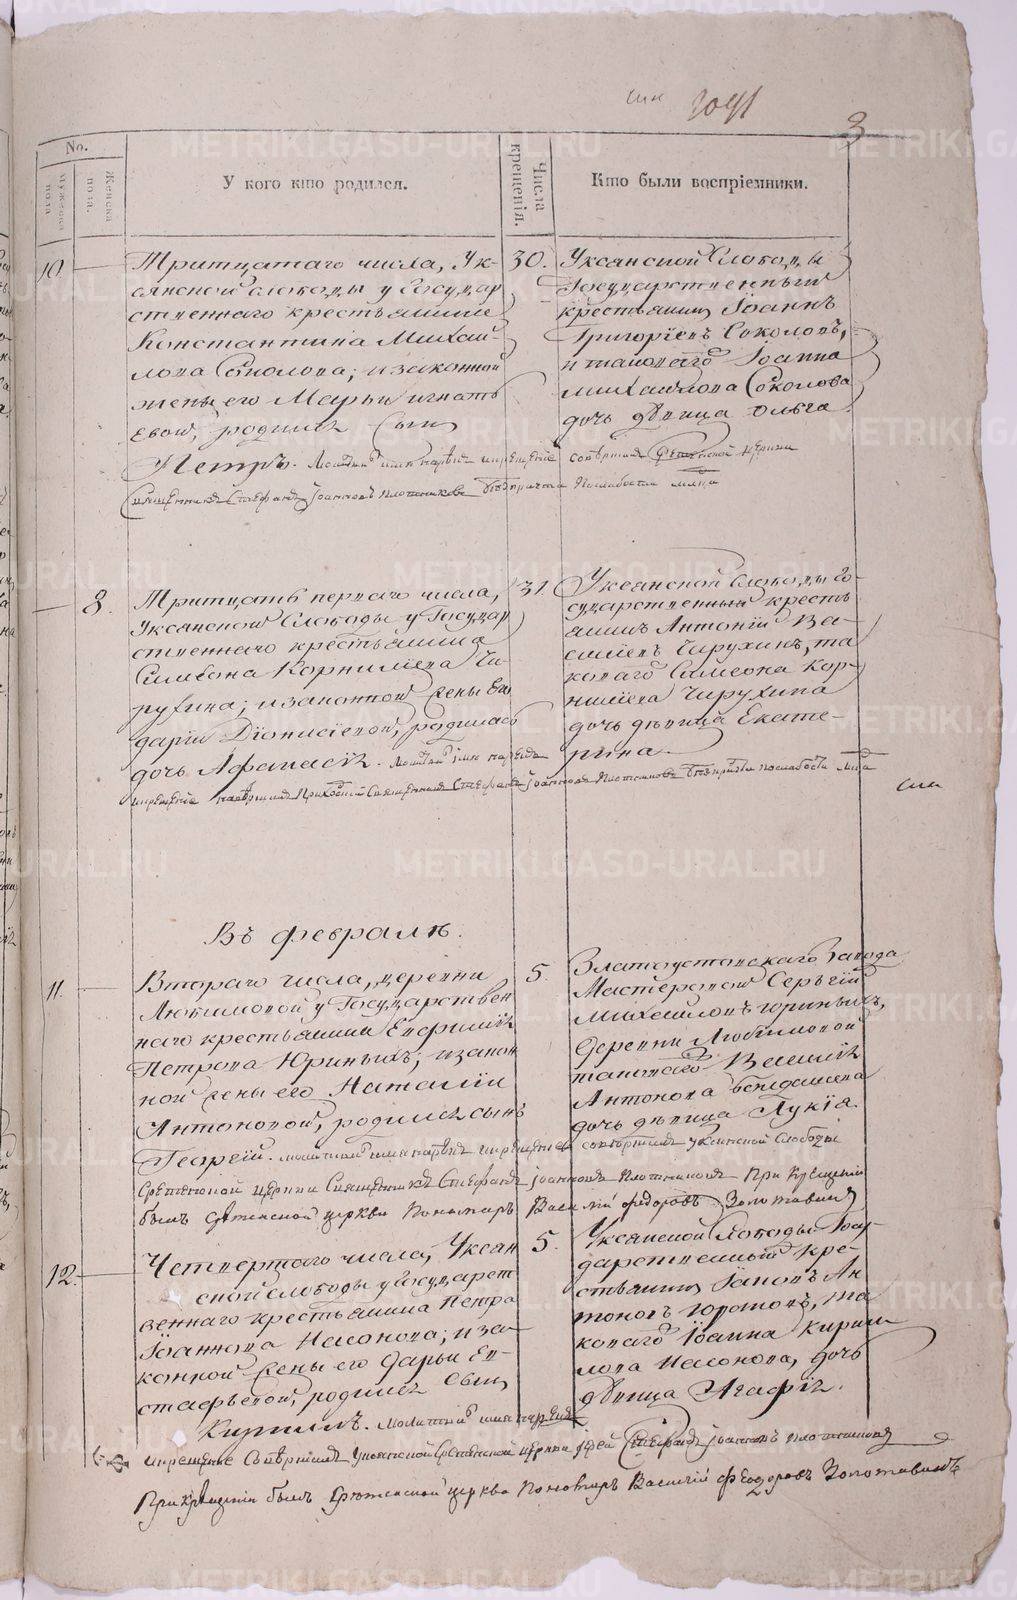 3
No.
Мужеска пола
Женска пола.
У кого кто родился.
Числа крещенія.
Кто были воспріемники.
10.
Тритцатаго числа, Ук-
сянской слободы у Государ
ственнаго крестьянина
Константина Михай-
лова Соколова, и законной
жены его Марьи Игнать
евой, родился сынъ
Петръ. Молитвы имя нарѣче и крещеніе совершилъ Срѣтенской церкви
Священникъ Стефанъ Іоанновъ Плотниковъ
30.
Уксянской Слободы
Государственный
крестьянинъ Іоаннъ
Григорьевъ Соколовъ,
и таковагожъ Іоанна
Михайлова Соколова
дочь дѣвица Ольга.
8.
Тритцать перваго числа,
Уксянской Слободы у Государ
ственнаго крестьянина
Симеона Корнилиева Чи-
рухина, и законной жены Ев
дарги Діонисіевой, родилась
дочь Афанасія. Молитв. имя нарѣче
крещеніе совершилъ Приходской Священникъ Стефанъ Іоанновъ Плотниковъ
31.
Уксянской Слободы Го-
сударственный кресть
янинъ Антоній Ва-
силіевъ Чирухинъ, та
коваго Симеона Кор-
нилиева Чирухина
дочь дѣвица Екате-
рина.
Въ февралѣ.
11.
Втораго числа, деревни
Любимовой у Государствен
наго крестьянина Евфимія
Петрова Юриныхъ, и закон
ной жены его Наталіи
Антоновой, родился сынъ
Георгій. Молитвы имя нарѣче и крещеніе совершилъ Уксянской Слободы
Срѣтенской церкви Священникъ Стефанъ Іоанновъ Плотниковъ При крещеніи
былъ Срѣтенской церкви Пономарь Василій Федоровъ Золотавинъ
5.
Златоустовскаго Завода
Мастеровой Сергій
Михайловъ Юриныхъ,
деревни Любимовой
таковагожъ Василія
Антонова Богданова
дочь дѣвица Лукія.
12.
Четвертаго числа, Уксян
ской слободы у Государст
веннаго крестьянина Петра
Іоаннова Насонова, и за-
конной жены его Дарьи Ев-
стафьевой, родился сынъ
Кириллъ. Молитвы имя нарѣче
и крещеніе Совершилъ Уксянской Срѣтенской церкви Іерей Стефанъ Іоанновъ Плотниковъ
При крещеніи былъ Срѣтенской церкви Пономарь Василій Феодоровъ Золотавинъ
5.
Уксянской Слободы Госу
дарственный кре-
стьянинъ Іаковъ Ан
тоновъ, та
коваго Іоанна Кирил
лова Насонова, дочь
дѣвица Агафія.
METRIKI.GASO-URAL.RU